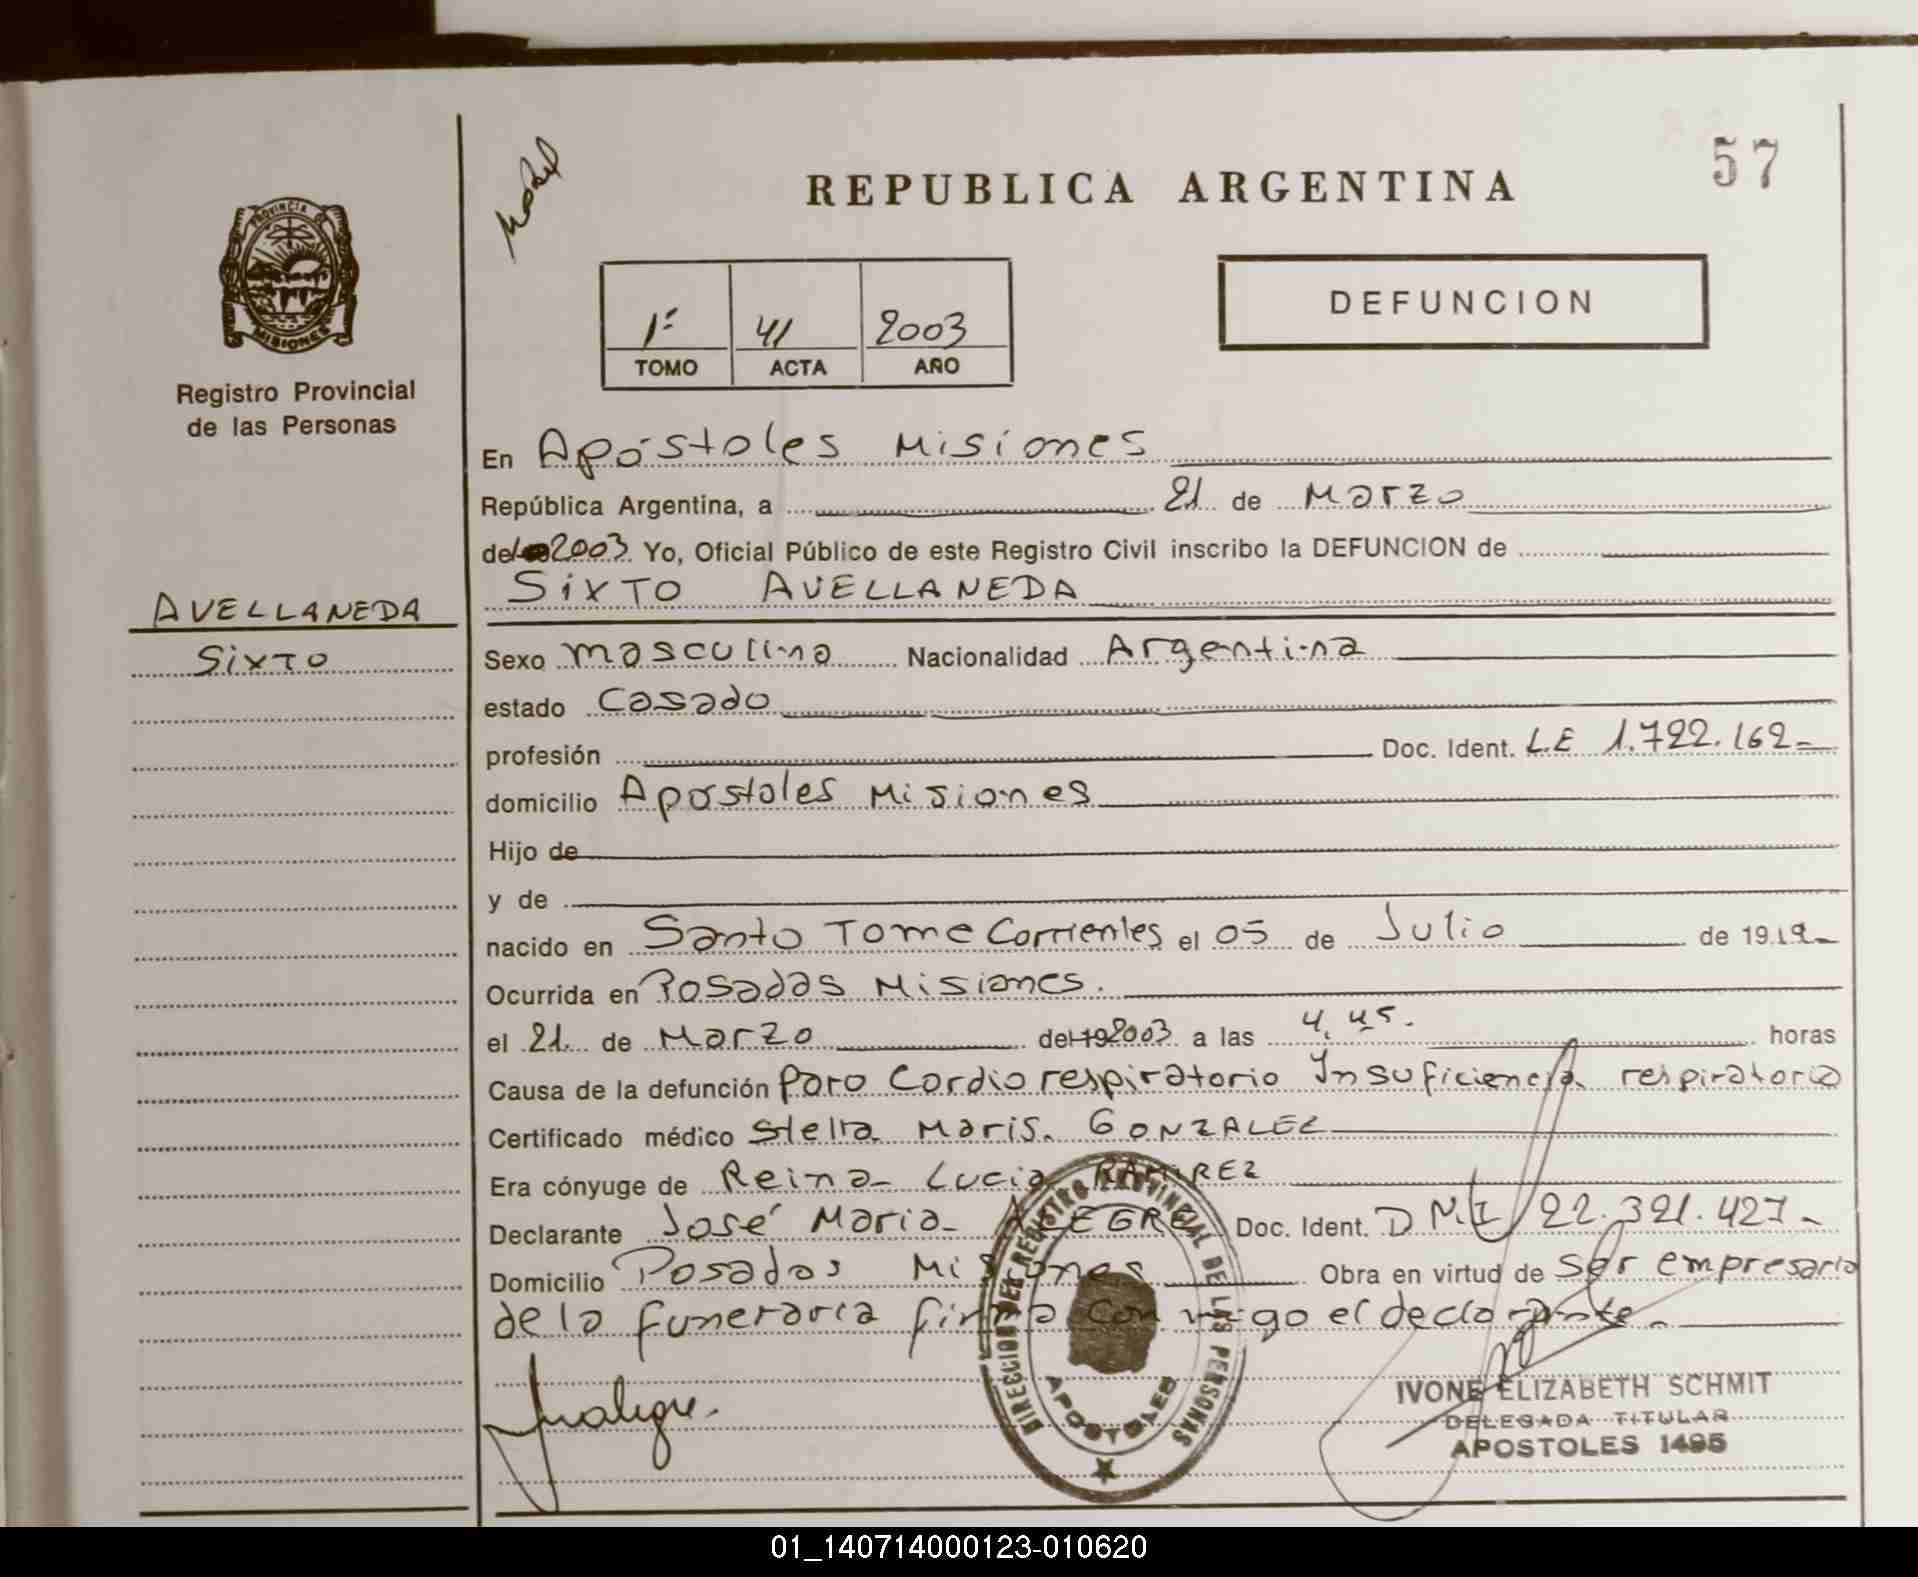 57
REPUBLICA ARGENTINA
PROVINCIA DE
MISIONES
Registro Provincial
de las Personas
1º 41 2003
TOMO ACTA AÑO
DEFUNCION
En Apóstoles Misiones
República Argentina, a 21 de Marzo
del 2003 Yo, Oficial Público de este Registro Civil inscribo la DEFUNCION de
SIXTO AVELLANEDA
AVELLANEDA
SIXTO
Sexo masculino Nacionalidad Argentina
estado Casado
profesión Doc. Ident. L.E 1.722.162-
domicilio Apostoles Misiones
Hijo de
y de
nacido en Santo Tome Corrientes el 05 de Julio de 1919-
Ocurrida en Posadas Misiones.
el 21 de Marzo del 19 2003 a las 4,45. horas
Causa de la defunción Paro Cardio respiratorio Insuficiencia respiratoria
Certificado médico Stella Maris. GONZALEZ
Era cónyuge de Reina Lucia RAMIREZ
Declarante José Maria ALEGRE Doc. Ident. D.N.I 22.321.427-
Domicilio Posadas Misiones Obra en virtud de ser empresario
de la funeraria firma conmigo el declarante.
DIRECCION DEL REGISTRO PROVINCIAL DE LAS PERSONAS
APOSTOLES
IVONE ELIZABETH SCHMIT
DELEGADA TITULAR
APOSTOLES 1495
01_140714000123-010620